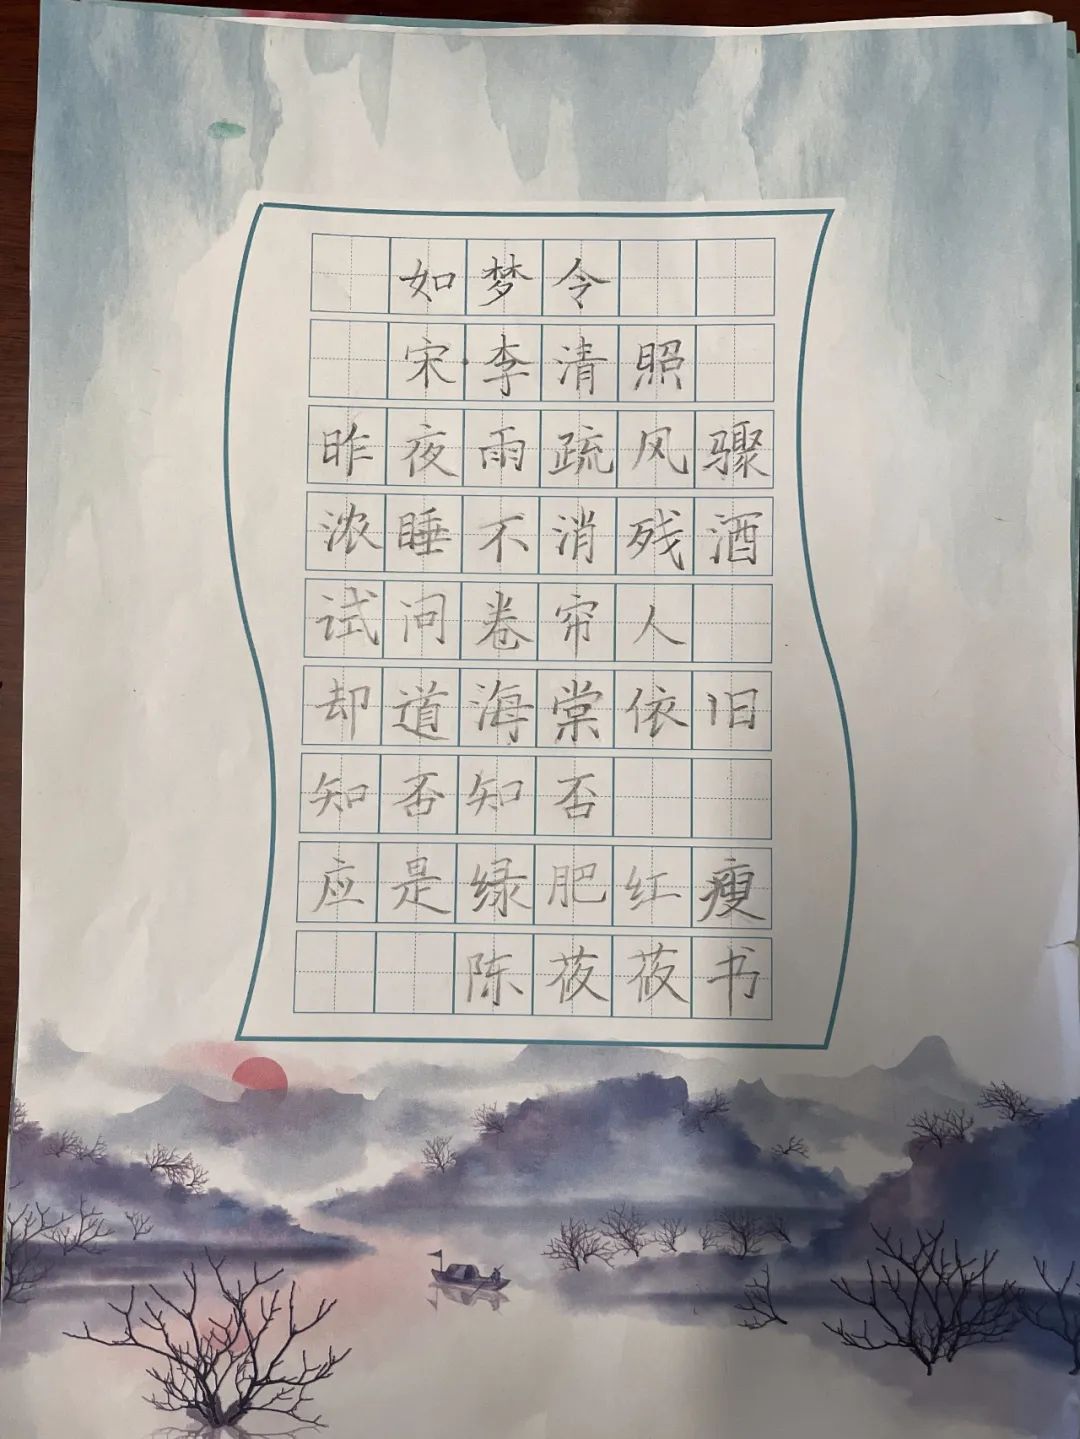 如梦令
宋·李清照
昨夜雨疏风骤
浓睡不消残酒
试问卷帘人
却道海棠依旧
知否知否
应是绿肥红瘦
陈莜莜书